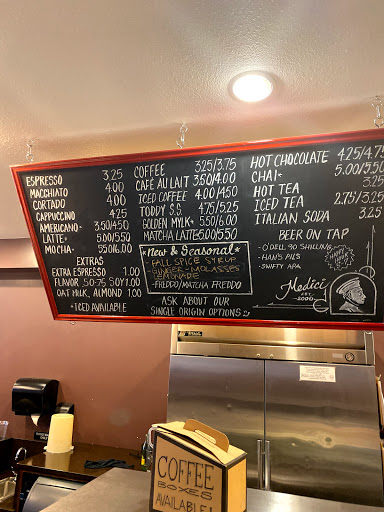 ESPRESSO 3.25
MACCHIATO 4.00
CORTADO 4.00
CAPPUCCINO 4.25
AMERICANO• 3.50/4.50
LATTE• 5.00/5.50
MOCHA• 5.50/6.00
EXTRAS
EXTRA ESPRESSO 1.00
FLAVOR .50-.75 SOY 1.00
OAT MILK, ALMOND 1.00
*ICED AVAILABLE
COFFEE 3.25/3.75
CAFÉ AU LAIT 3.50/4.00
ICED COFFEE 4.00/4.50
TODDY S.S. 4.75/5.25
GOLDEN MYLK• 5.50/6.00
MATCHA LATTE• 5.00/5.50
•New & Seasonal•
FALL SPICE SYRUP
GINGER-MOLASSES
LEMONADE
-FREDDO/MATCHA FREDDO
ASK ABOUT OUR
SINGLE ORIGIN OPTIONS
HOT CHOCOLATE 4.25/4.75
CHAI• 5.00/5.50
HOT TEA 3.25
ICED TEA 2.75/3.25
ITALIAN SODA 3.25
BEER ON TAP
- O'DELL 90 SHILLING
- HAN'S PILS
- SWIFTY APA
Medici
EST.
2000
COFFEE
BOXES
AVAILABLE!